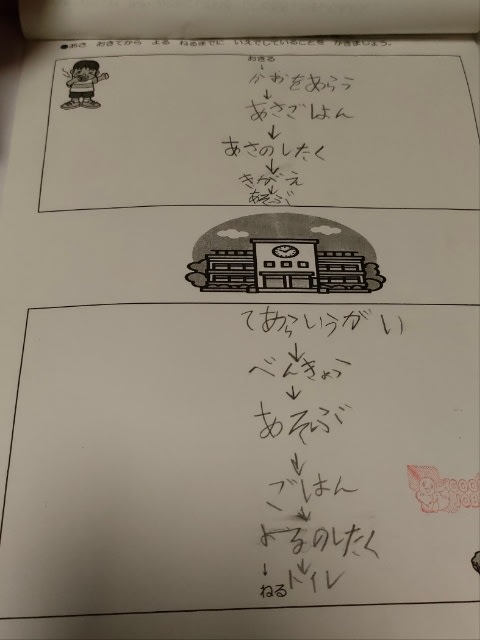 ●あさ おきてから よる ねるまでに いえでしていることを かきましょう。
おきる
↓
かおをあらう
↓
あさごはん
↓
あさのしたく
↓
きがえ
↓
あそぶ
てあらいうがい
↓
べんきょう
↓
あそぶ
↓
ごはん
↓
よるのしたく
↓ ↓
ねる トイレ